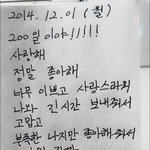 2014. 12. 01 (월)
200일 이야!!!!!
사랑해
정말 좋아해
너무 이쁘고 사랑스러워
나와 긴시간 보내줘서
고맙고
부족한 나지만 좋아해줘서